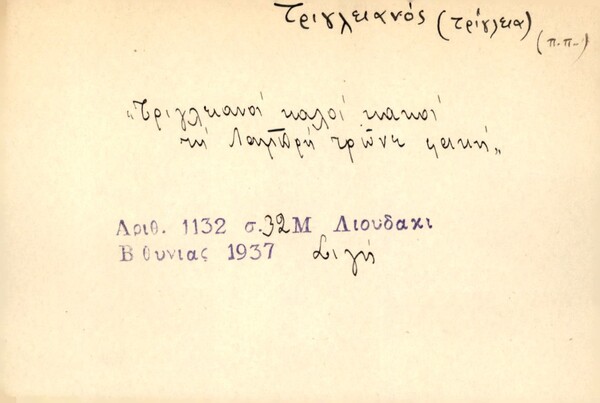 Τριγλειανός (Τρίγλεια)
(π.π-)
„Τριγλειανοί καλοί κακοί
τη Λαμπρή τρώνε φακή„
Αριθ. 1132 σ. 32 Μ Λιουδακι
Βθυνιας 1937 Σιγή